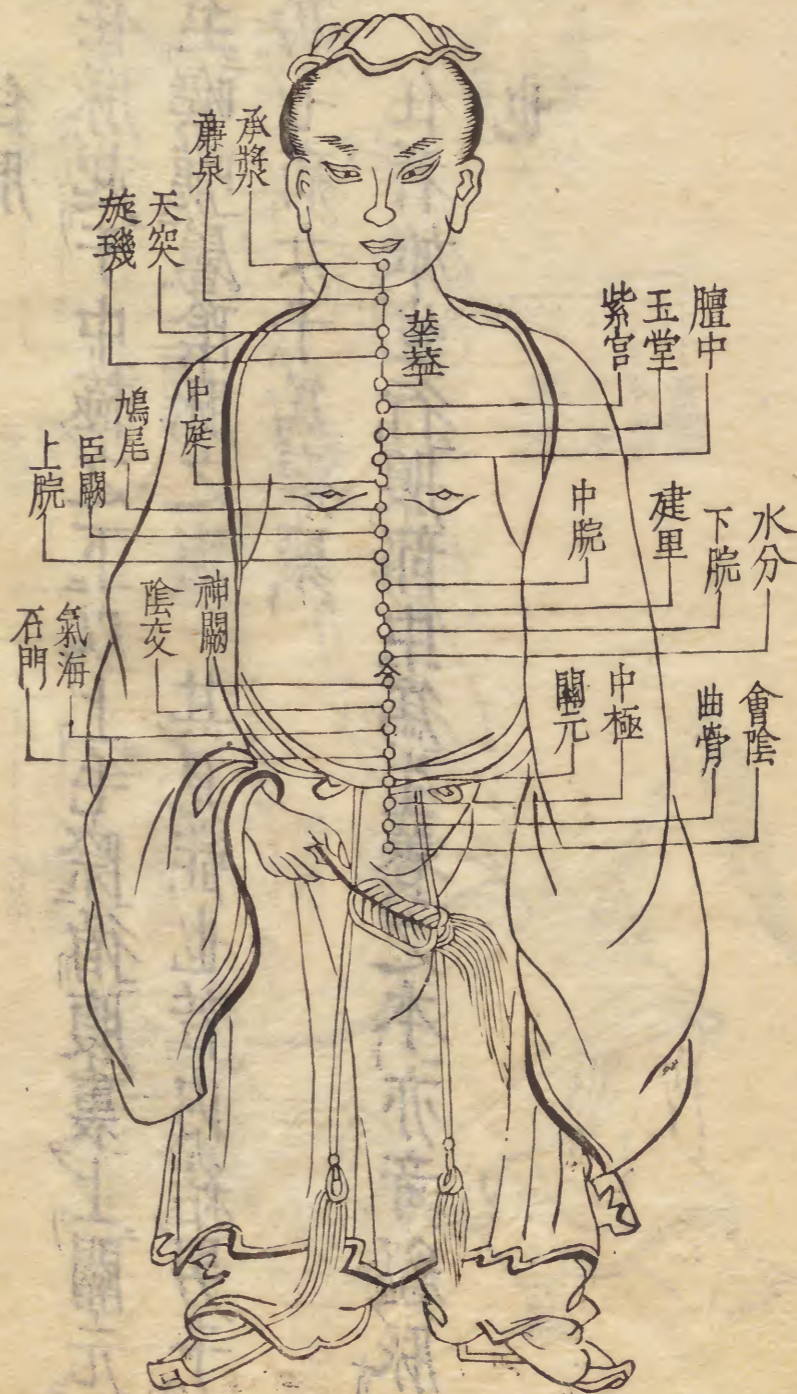 承漿
廉泉
天突
旋璣
華蓋
紫宫
玉堂
膻中
中庭
鳩尾
巨闕
上脘
中脘
建里
下脘
水分
神闕
陰交
氣海
石門
關元
中極
曲骨
會陰